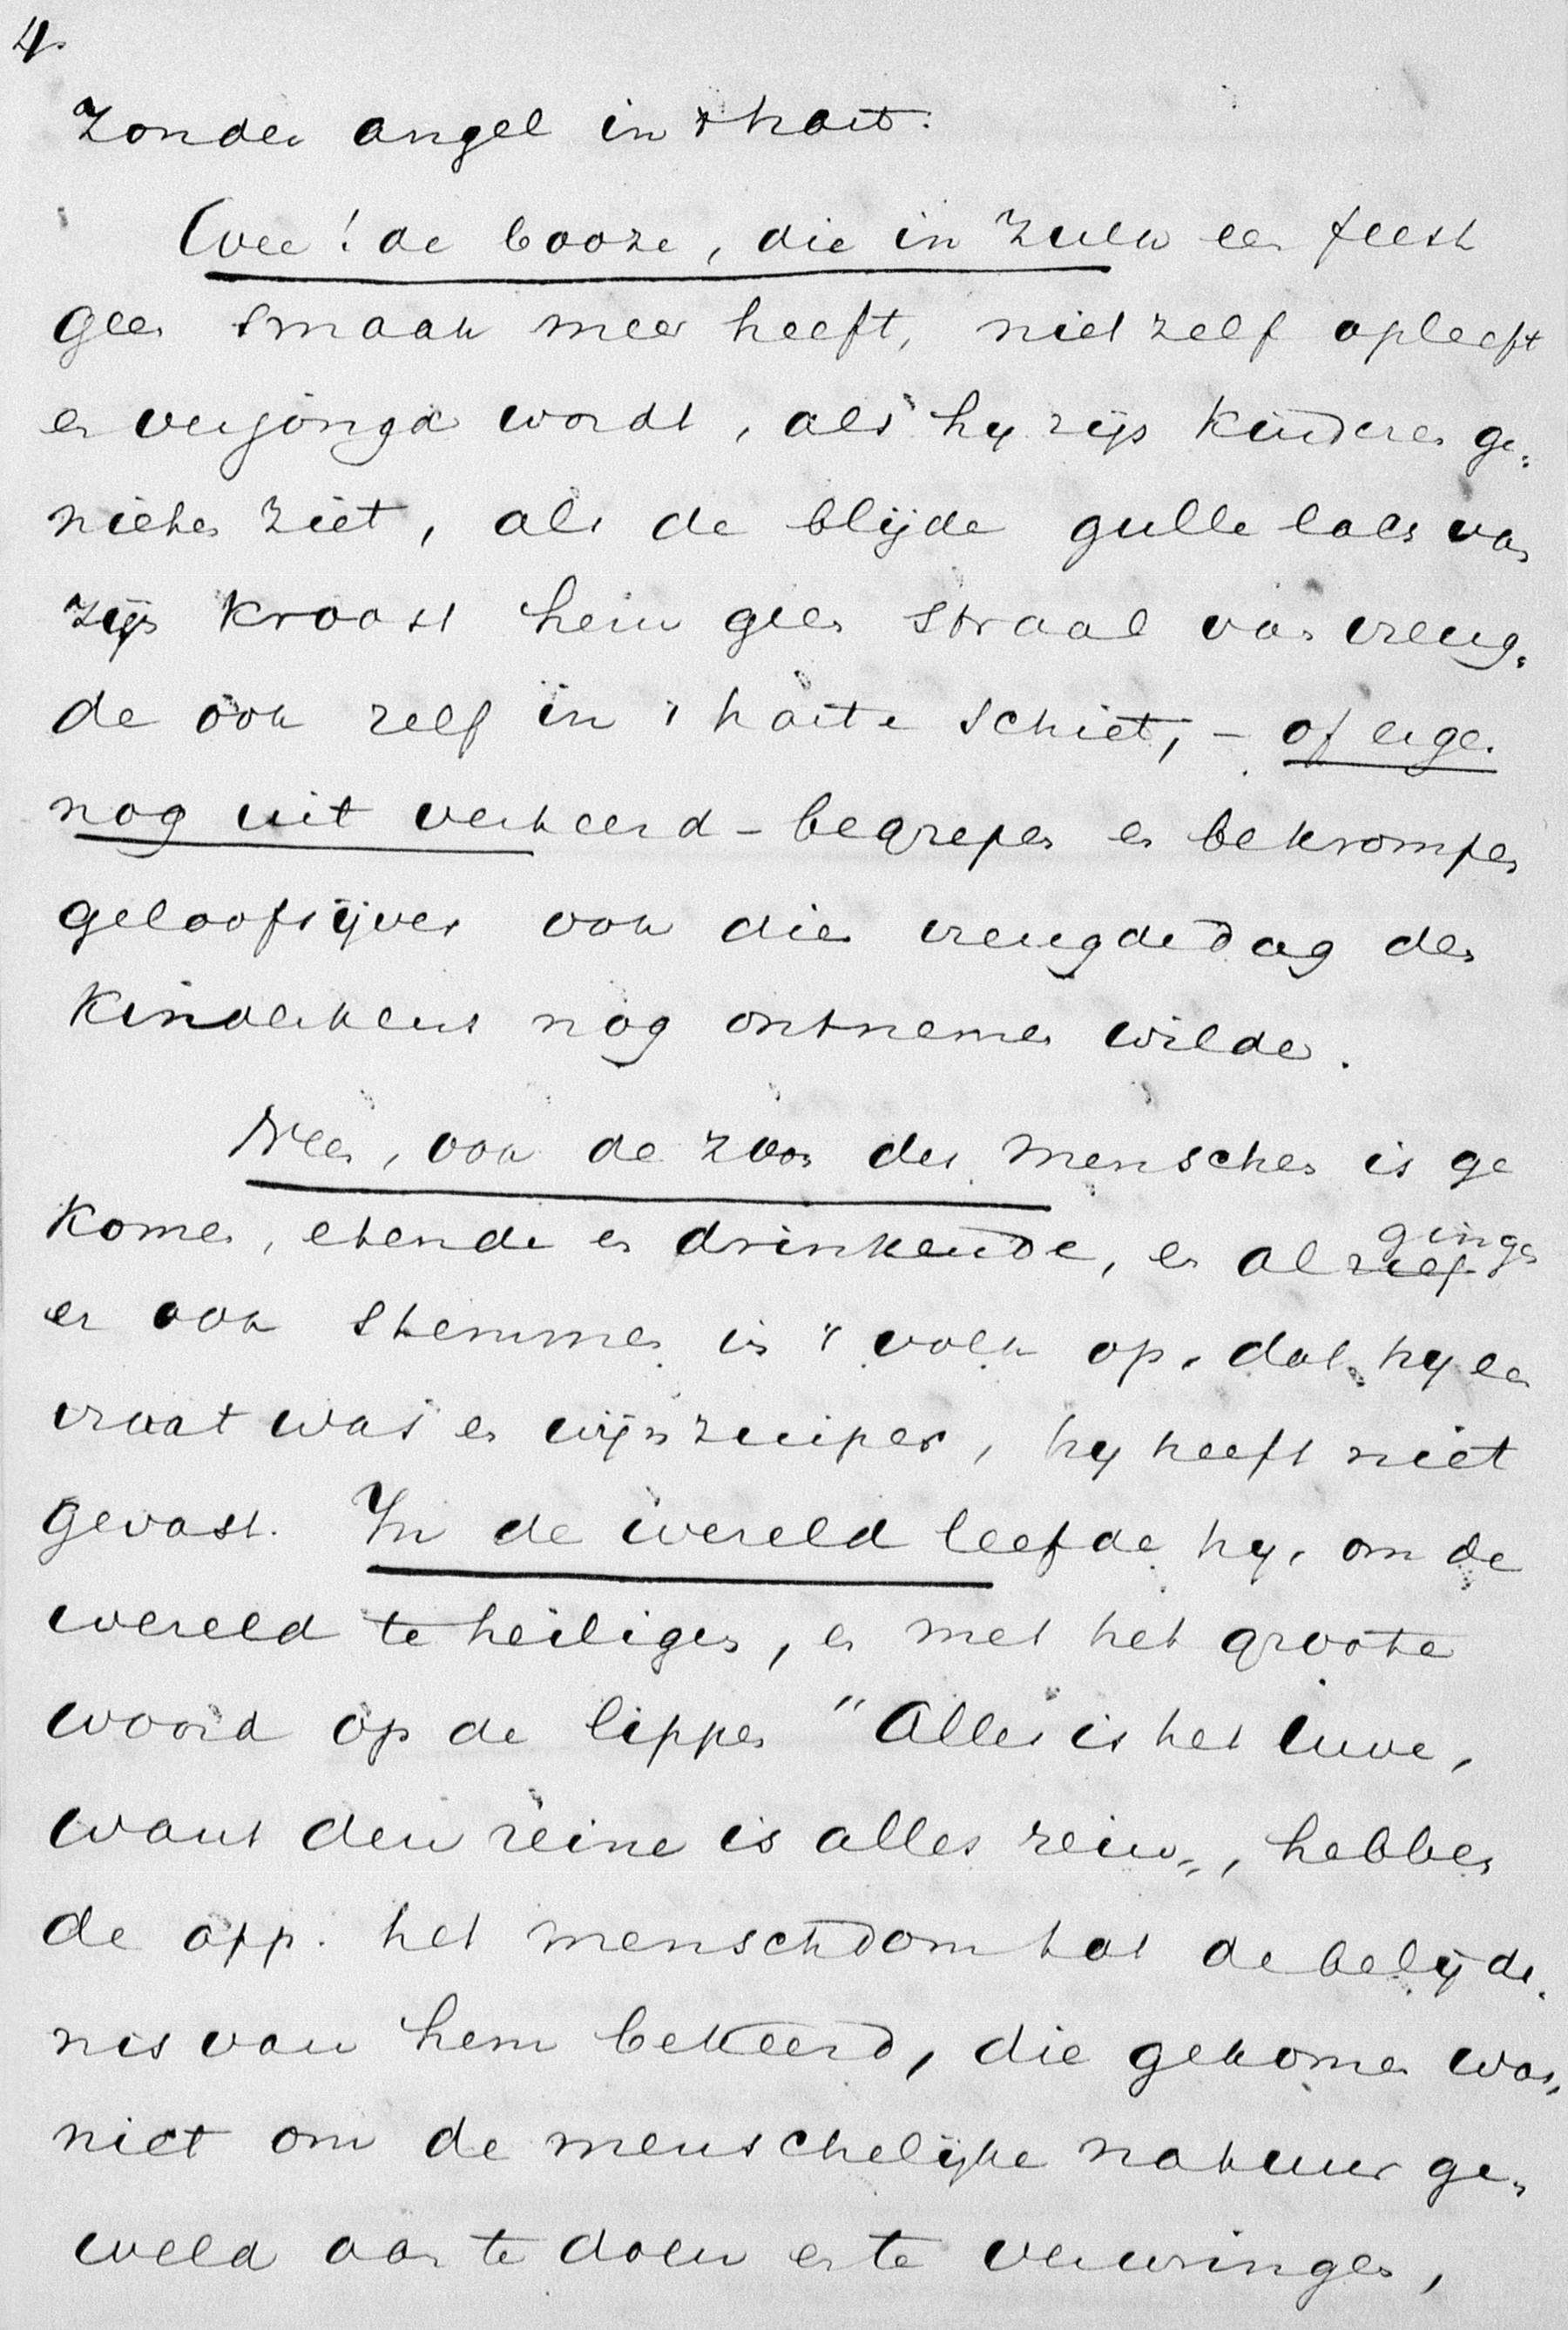 4.
zonder angel in 't hart.
Wee! de booze, die in zulk een feest
geen smaak meer heeft, niet zelf opleeft
en verjongd wordt, als hy zijn kinderen ge-
nieten ziet, als de blijde gulle lach van
zijn kroost hem geen straal van vreug-
de ook zelf in 't harte schiet, – of erger
nog uit verkeerd-begrepen en bekrompen
geloofsijver ook dien vreugdedag den
kinderkens nog ontnemen wilde.
Neen, ook de zoon des menschen is ge
komen, etende en drinkende, en al rief gingen
er ook stemmen in 't volk op, dat hy een
vraat was en wijnzuiper, hy heeft niet
gevast. In de wereld leefde hy, om de
wereld te heiligen, en met het groote
woord op de lippen "Alles is het uwe,
want den reine is alles rein", hebben
de app. het menschdom tot de belijde-
nis van hem bekeerd, die gekomen was,
niet om de menschelijke natuur ge-
weld aan te doen en te verwringen,